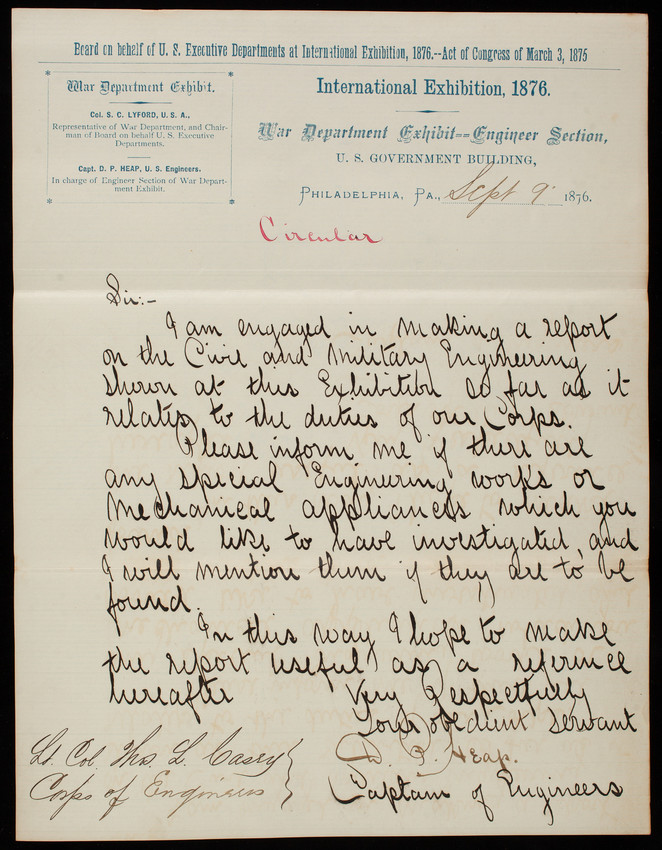 Board on behalf of U. S. Executive Departments at International Exhibition, 1876.--Act of Congress of March 3, 1875
War Department Exhibit.
Col. S. C. LYFORD, U. S. A.,
Representative of War Department, and Chair-
man of Board on behalf U. S. Executive
Departments.
Capt. D. P. HEAP, U. S. Engineers.
In charge of Engineer Section of War Depart-
ment Exhibit.
International Exhibition, 1876.
War Department Exhibit--Engineer Section,
U. S. GOVERNMENT BUILDING,
PHILADELPHIA, PA., Sept 9 1876.
Circular
Sir:-
I am engaged in making a report
on the Civil and Military Engineering
shown at this Exhibition so far as it
relates to the duties of our Corps.
Please inform me if there are
any special Engineering works or
mechanical appliances which you
would like to have investigated, and
I will mention them if they are to be
found.
In this way I hope to make
the report useful as a reference
hereafter
Very Respectfully
Your obedient servant
D. P. Heap.
Captain of Engineers
Lt. Col. Thos. L. Casey
Corps of Engineers